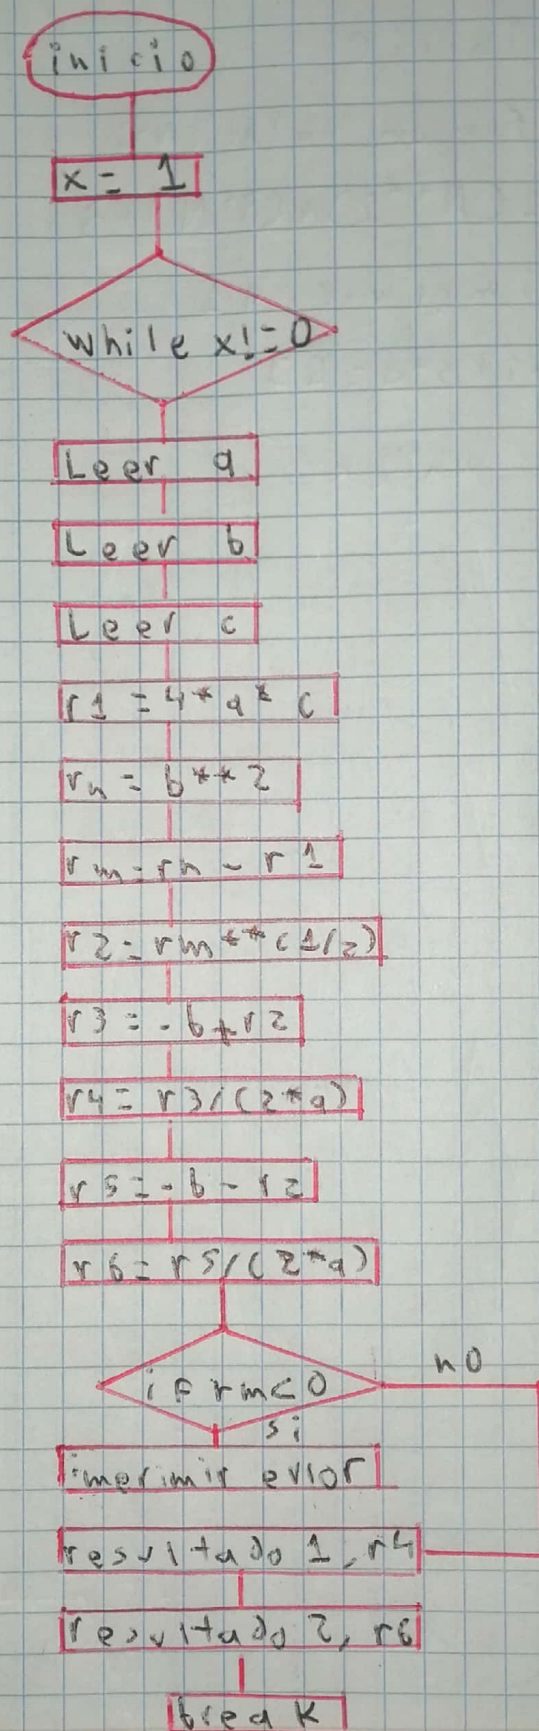 inicio
x = 1
while x!=0
Leer a
Leer b
Leer c
r1 = 4*a* c
rn = b**2
rm = rn - r1
r2 = rm**(1/2)
r3 = -b+r2
r4 = r3/(2*a)
r5 = -b - r2
r6 = r5/(2*a)
if rm<0
no
si
imprimir error
resultado 1, r4
resultado 2, r6
break